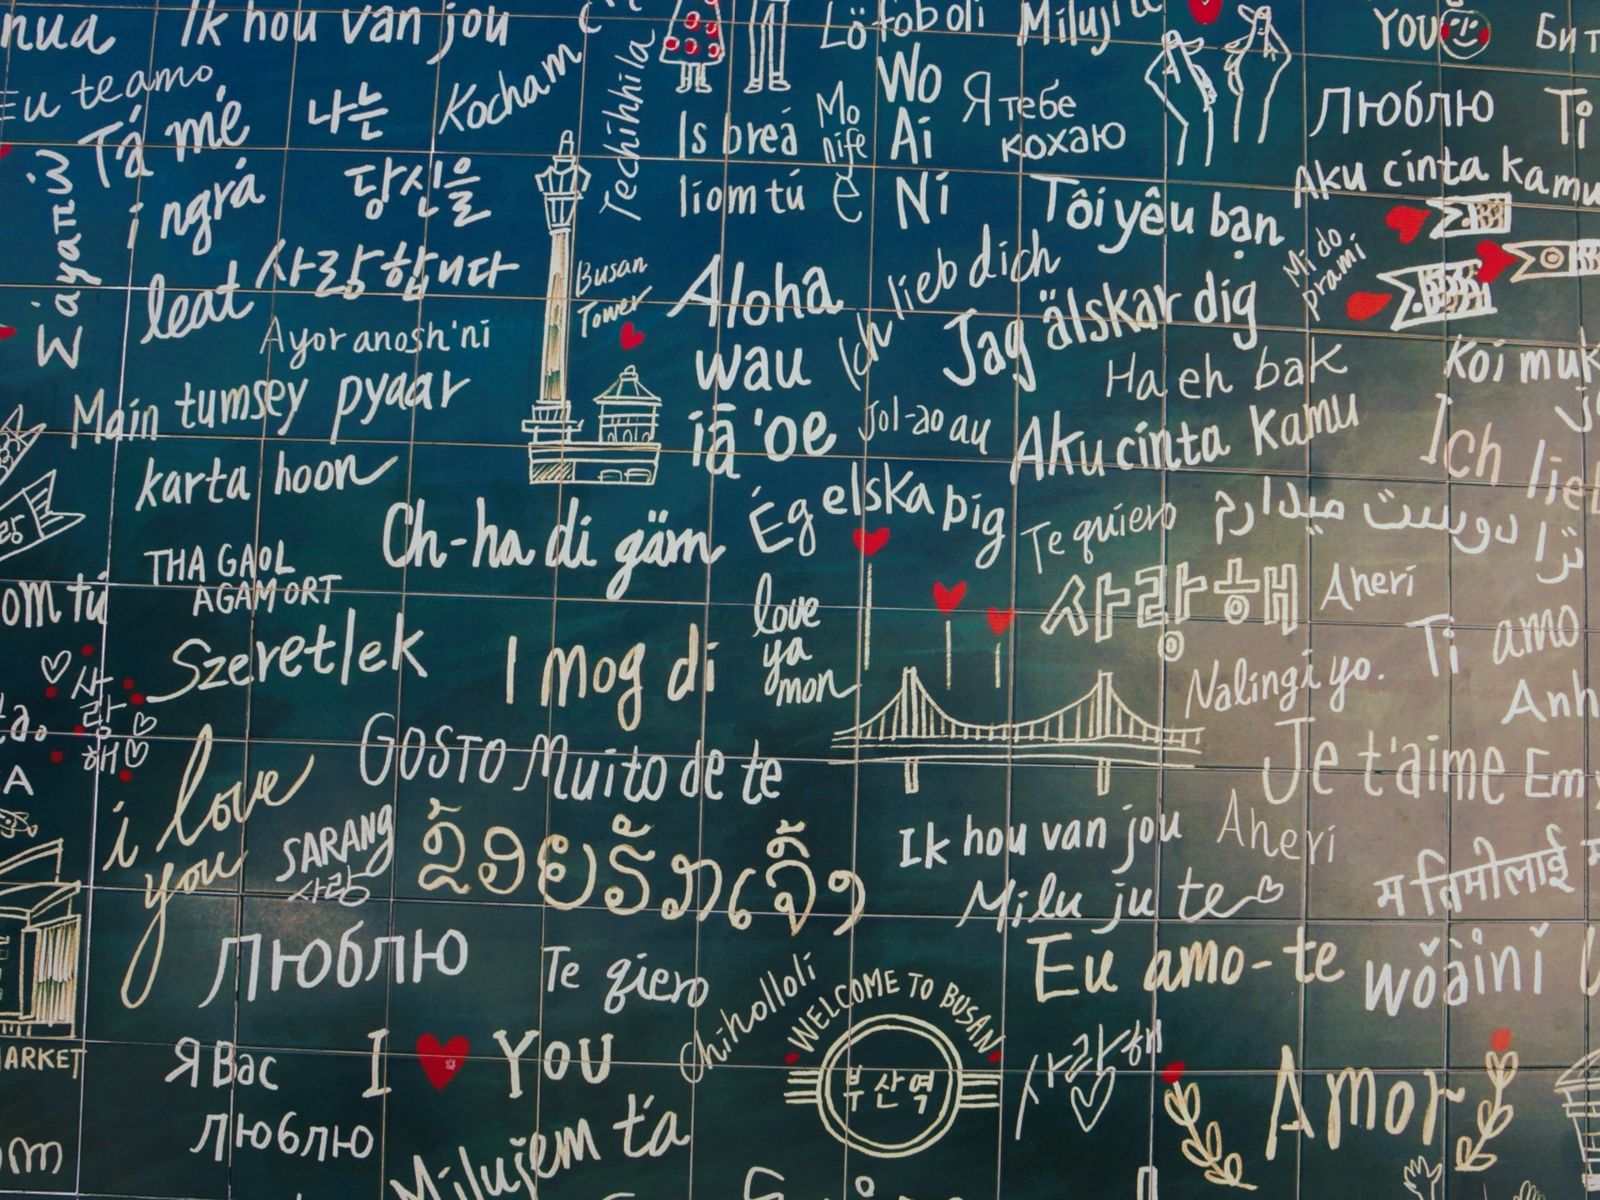 Ik hou van jou
Eu te amo
Tá mé
i ngrá
leat
Σάγαπώ
나는
당신을
사랑합니다
Kocham
Techihhila
Busan
Tower
Is breá
liom tú
Mo
nife
Wo
Ai
Ní
Я тебе
кохаю
YOU
Люблю
Ti
Aku cinta kamu
Tôi yêu bạn
Mi do
prami
Ayor anosh'ni
Main tumsey pyaar
karta hoon
Aloha
wau
iā 'oe
Ich lieb dich
Jag älskar dig
Ha eh bak
Koi muk
Jol-ao au
Aku cinta kamu
Ég elska þig
Te quiero
دوست میدارم
ترا
Ich lieb
Ch-ha di gäm
THA GAOL
AGAM ORT
om tú
Szeretlek
I mog di
love
ya
mon
사랑해
Aheri
Ti amo
Nalingi yo.
Anh
사
랑
해
i love
you
Gosto Muito de te
Je t'aime
Em y
SARANG
사랑
ຂ້ອຍຮັກເຈົ້າ
Ik hou van jou
Aheri
Milu ju te
म तिमीलाई
Люблю
Te qiero
Chiholloli
Eu amo-te
wǒàinǐ
WELCOME TO BUSAN
부산역
사랑해
MARKET
Я Вас
люблю
I YOU
Amor
Milujem ťa